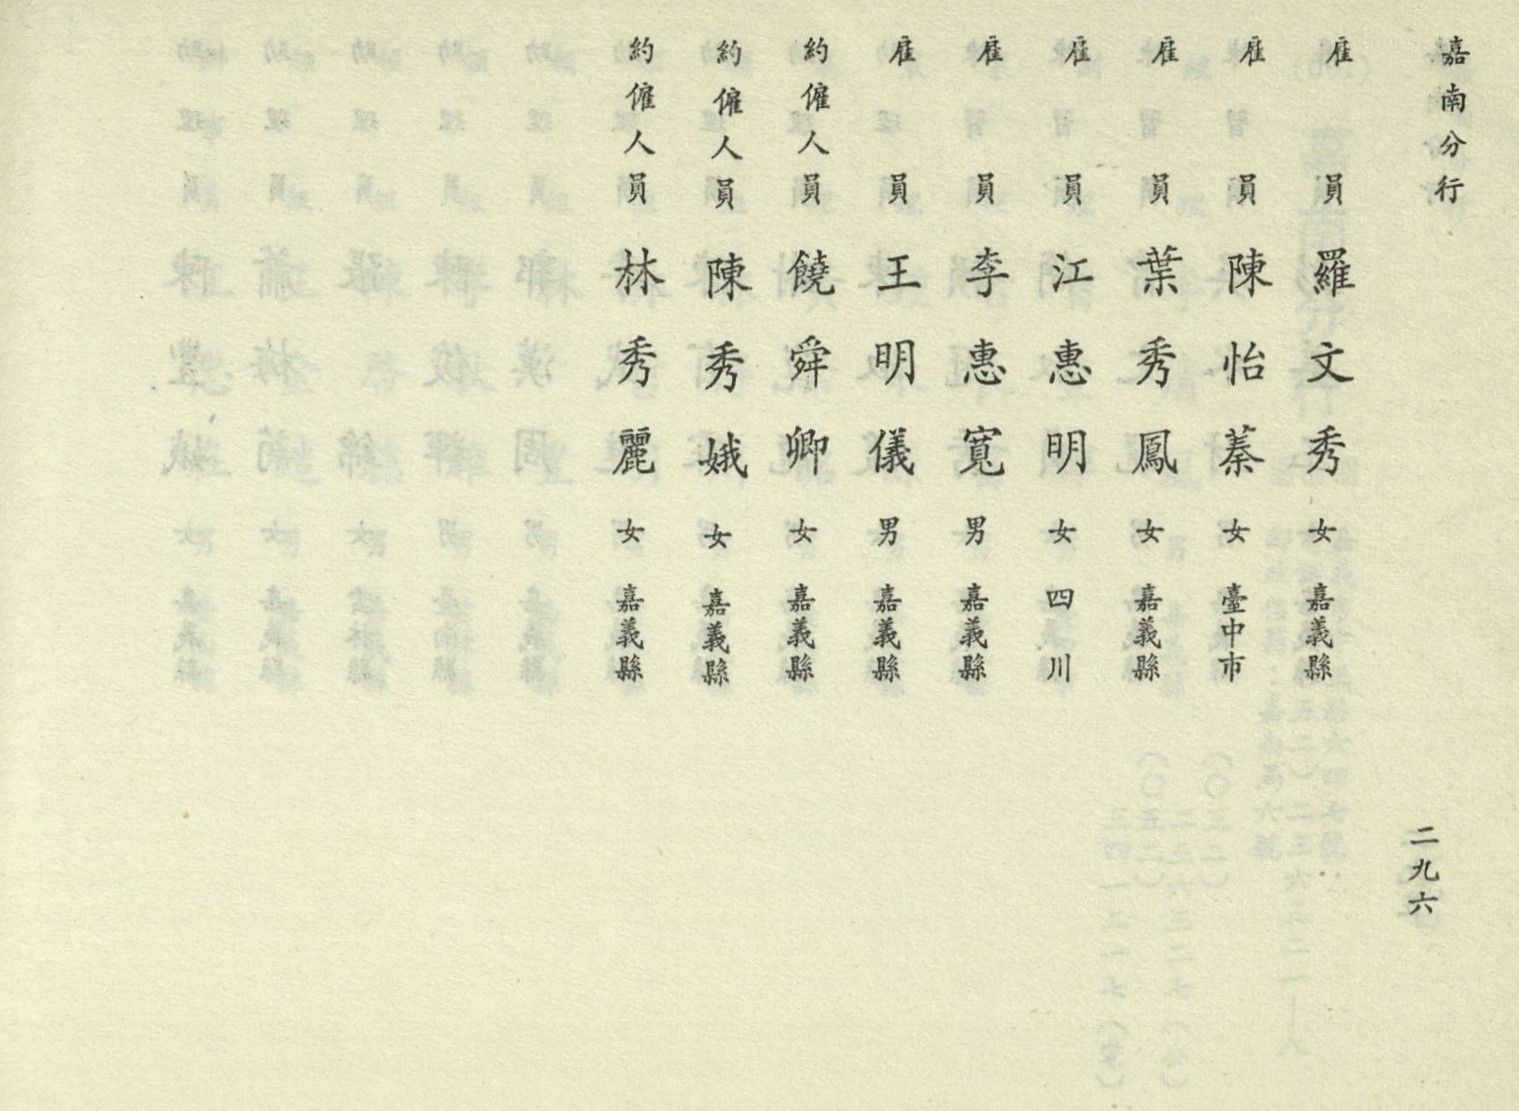 嘉南分行
二九六
雇員 羅文秀 女 嘉義縣
雇員 陳怡蓁 女 臺中市
雇員 葉秀鳳 女 嘉義縣
雇員 江惠明 女 四川
雇員 李惠寬 男 嘉義縣
雇員 王明儀 男 嘉義縣
約僱人員 饒舜卿 女 嘉義縣
約僱人員 陳秀娥 女 嘉義縣
約僱人員 林秀麗 女 嘉義縣